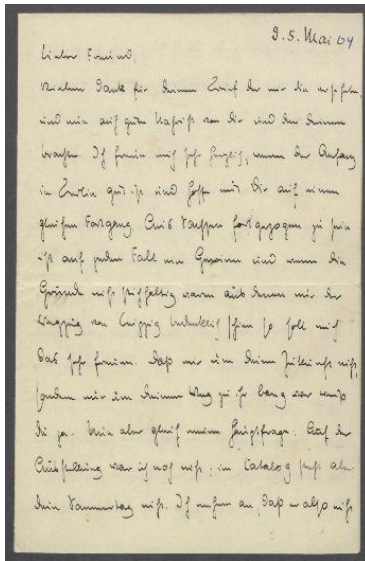 2. 5. Mai 04
Lieber Freund,
Vielen Dank für Deinen Brief der mir die
und nun auch gute Nachricht von Dir und den Deinen
brachte. Ich freue mich sehr herzlich, wenn der Anfang
in Berlin gut ist und hoffe mit Dir auf einen
gleichen Fortgang. Aus Sachsen fortgezogen zu sein
ist auf jeden Fall ein Gewinn und wenn die
Gründe nicht stichhaltig waren aus denen mir der
Wegzug von Leipzig bedenklich schien so soll mich
das sehr freuen. Daß mir um Deine Zukunft nicht,
sondern nur um Deinen Weg zu ihr bang war weißt
Du ja. Nun aber gleich meine Hauptfrage: Auf der
Ausstellung war ich noch nicht; im Catalog steht aber
Dein Sommertag nicht. Ich nehme an, daß er also nicht